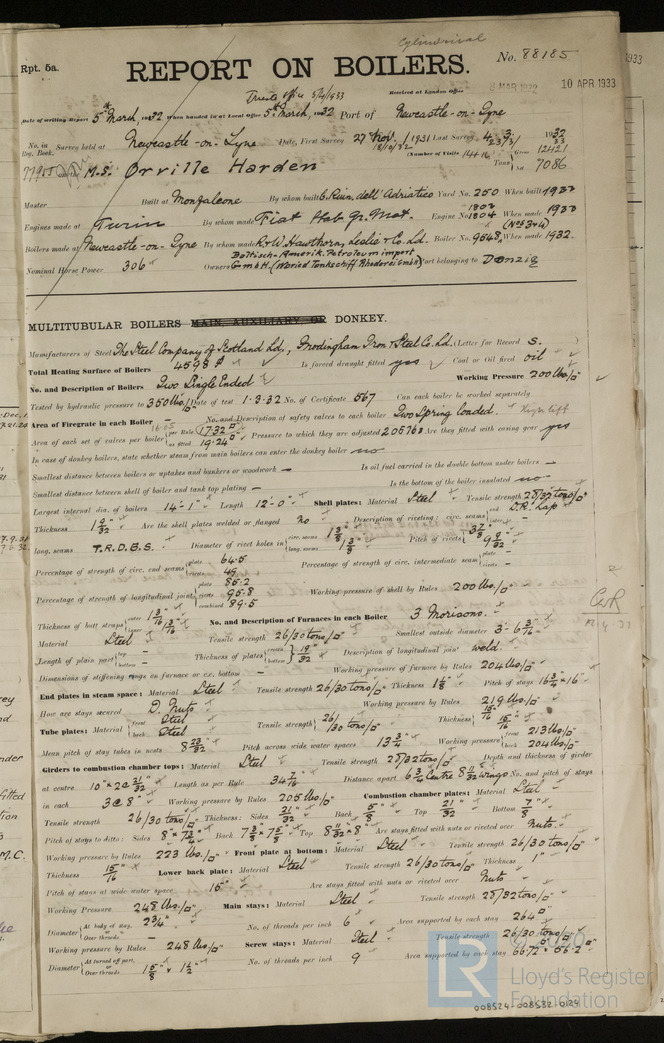 Cylindrical
Rpt. 5a.
REPORT ON BOILERS.
No. 88185
Trieste office 5/4/1933
Received at London Office
9 MAR 1932 10 APR 1933
1933
Date of writing Report 5th March, 1932 When handed in at Local Office 5th March, 1932 Port of Newcastle-on-Tyne
No. in Reg. Book. Survey held at Newcastle-on-Tyne Date, First Survey 27 Nov. 1931 Last Survey 1932
(Number of Visits Gross 12421
M.S. Orville Harden Tons Net 7086
Master Built at Monfalcone By whom built C. Riun. dell' Adriatico Yard No. 250 When built 1933
Engines made at Turin By whom made Fiat Stab. Gr. Mot. Engine No. 1803 1804 When made 1933
Boilers made at Newcastle-on-Tyne By whom made R. & W. Hawthorn, Leslie & Co. Ld. Boiler No. 9648 (Nos 3&4) When made 1932.
Nominal Horse Power 306 Owners Baltisch-Amerik. Petroleum import GmbH. (Waried Tankschiff Rhederei GmbH) Port belonging to Danzig
MULTITUBULAR BOILERS MAIN, AUXILIARY OR DONKEY.
Manufacturers of Steel The Steel Company of Scotland Ld, Frodingham Iron & Steel Co. Ld. (Letter for Record S. )
Total Heating Surface of Boilers 4598 Is forced draught fitted yes Coal or Oil fired oil
No. and Description of Boilers Two Single Ended Working Pressure 200 lbs/□"
Tested by hydraulic pressure to 350 lbs/□" Date of test 1.3.32 No. of Certificate 567 Can each boiler be worked separately
Area of Firegrate in each Boiler No. and Description of safety valves to each boiler Two Spring loaded. High lift
Area of each set of valves per boiler per Rule 17.32 □" as fitted 19.24 □" Pressure to which they are adjusted 205 lbs Are they fitted with easing gear yes
In case of donkey boilers, state whether steam from main boilers can enter the donkey boiler no
Smallest distance between boilers or uptakes and bunkers or woodwork — Is oil fuel carried in the double bottom under boilers —
Smallest distance between shell of boiler and tank top plating — Is the bottom of the boiler insulated no
Largest internal dia. of boilers 14'-1" Length 12'-0" Shell plates: Material Steel Tensile strength 28/32 tons/□"
Thickness 1 9/32 Are the shell plates welded or flanged no Description of riveting: circ. seams end D.R. Lap inter. —
long. seams T.R.D.B.S. Diameter of rivet holes in circ. seams 1 3/8 long. seams 1 3/8 Pitch of rivets 3 7/8 9 9/32
Percentage of strength of circ. end seams plate 64.5 rivets 49 Percentage of strength of circ. intermediate seam plate — rivets —
Percentage of strength of longitudinal joint plate 85.2 rivets 95.8 combined 89.5 Working pressure of shell by Rules 200 lbs/□"
Thickness of butt straps outer 1 3/16 inner 1 3/16 No. and Description of Furnaces in each Boiler 3 Morisons.
Material Steel Tensile strength 26/30 tons/□" Smallest outside diameter 3'-6 3/16"
Length of plain part top — bottom — Thickness of plates crown bottom 19/32 Description of longitudinal joint weld.
Dimensions of stiffening rings on furnace or c.c. bottom — Working pressure of furnace by Rules 204 lbs/□"
End plates in steam space: Material Steel Tensile strength 26/30 tons/□" Thickness 1 1/8 Pitch of stays 16 3/4 × 16"
How are stays secured D. Nuts Working pressure by Rules 219 lbs/□"
Tube plates: Material front Steel back Steel Tensile strength 26/30 tons/□" Thickness 15/16 15/16
Mean pitch of stay tubes in nests 8 23/32 Pitch across wide water spaces 13 3/4 Working pressure front 213 lbs/□" back 204 lbs/□"
Girders to combustion chamber tops: Material Steel Tensile strength 28/32 tons/□" Depth and thickness of girder
at centre 10" × 2 @ 21/32 Length as per Rule 34 7/16 Distance apart 6 3/4 Centre 8 11/32 wings No. and pitch of stays
in each 3 @ 8" Working pressure by Rules 205 lbs/□" Combustion chamber plates: Material Steel
Tensile strength 26/30 tons/□" Thickness: Sides 21/32 Back 5/8 Top 21/32 Bottom 7/8
Pitch of stays to ditto: Sides 8" × 7 3/4 Back 7 3/8 × 7 5/8 Top 8 11/32 × 8" Are stays fitted with nuts or riveted over Nuts.
Working pressure by Rules 223 lbs/□" Front plate at bottom: Material Steel Tensile strength 26/30 tons/□"
Thickness 15/16 Lower back plate: Material Steel Tensile strength 26/30 tons/□" Thickness 1"
Pitch of stays at wide water space 15" Are stays fitted with nuts or riveted over Nuts
Working Pressure 248 lbs/□" Main stays: Material Steel Tensile strength 28/32 tons/□"
Diameter At body of stay, 2 3/4" Over threads — No. of threads per inch 6 Area supported by each stay 264 □"
Working pressure by Rules 248 lbs/□" Screw stays: Material Steel Tensile strength 26/30 tons/□"
Diameter At turned off part, Over threads 1 5/8 × 1 1/2" No. of threads per inch 9 Area supported by each stay
LR
Lloyd's Register
Foundation
008524-008532-0124